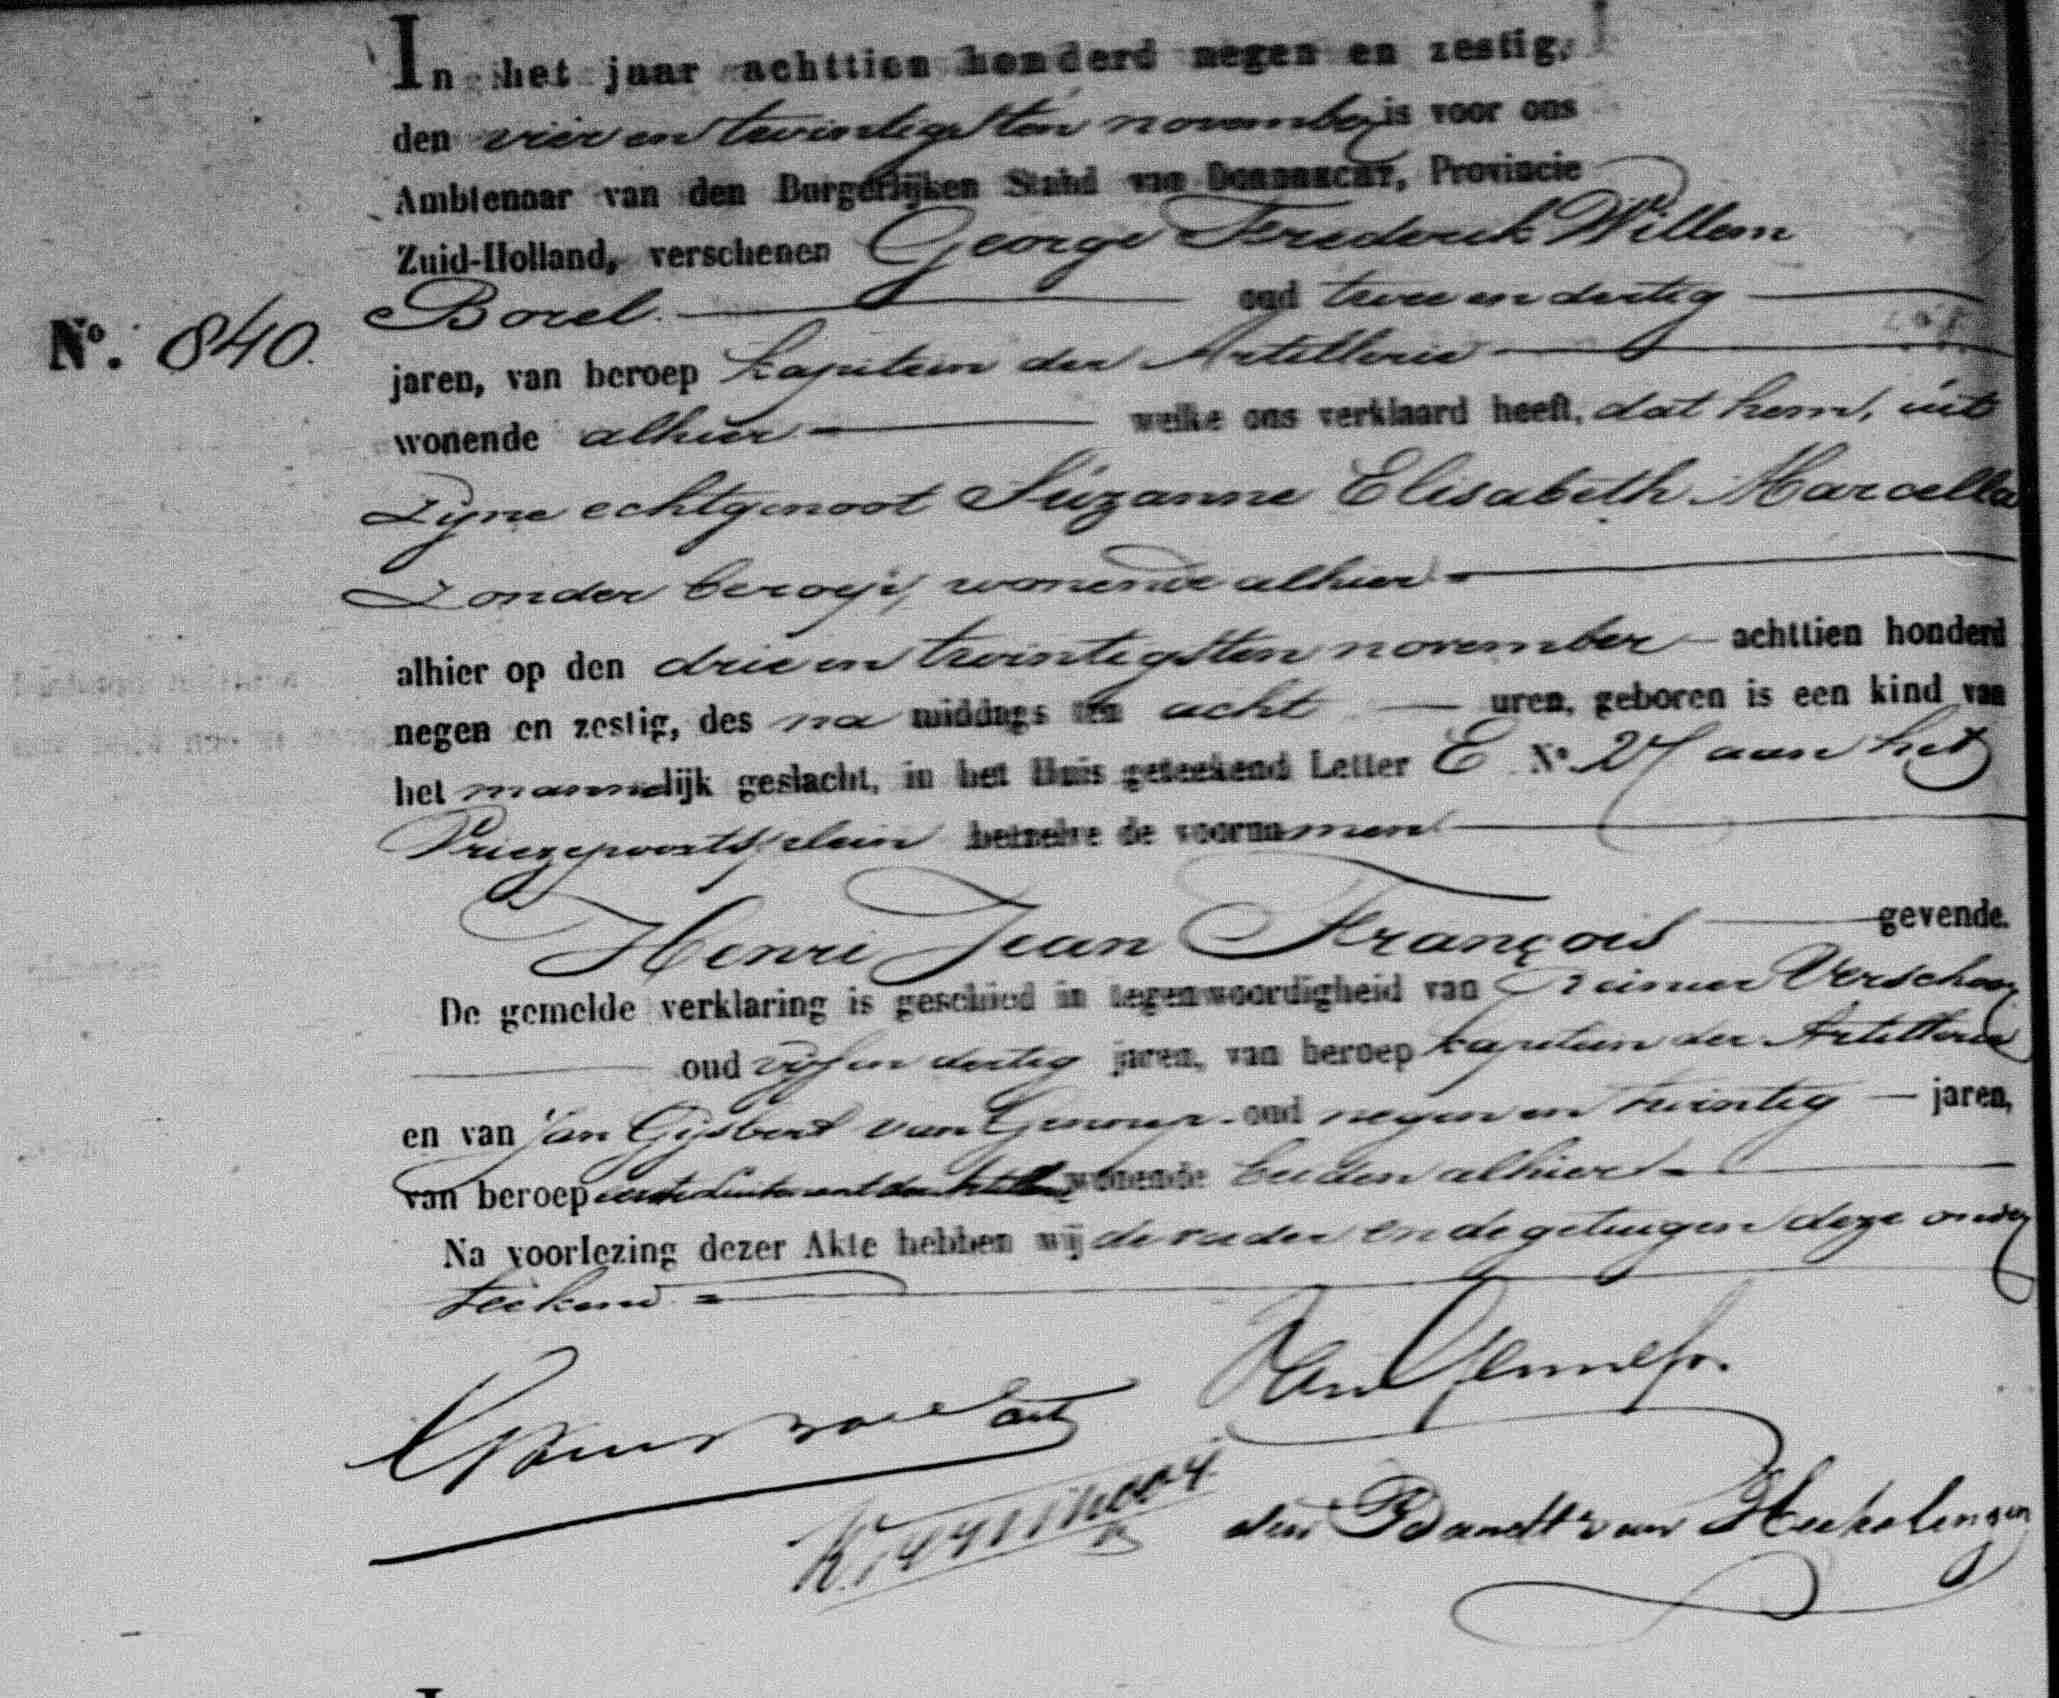 In het jaar achttien honderd negen en zestig,
den vier en twintigsten november is voor ons
Ambtenaar van den Burgerlijken Stand van DORDRECHT, Provincie
Zuid-Holland, verschenen George Frederik Willem
Borel oud twee en dertig
N°. 840.
jaren, van beroep kapitein der Artillerie
wonende alhier welke ons verklaard heeft, dat hem, uit
Zyne echtgenoot Súzanne Elisabeth Marcella
Zonder beroep, wonende alhier
alhier op den drie en twintigsten november achttien honderd
negen en zestig, des na middags ten acht uren, geboren is een kind van
het mannelijk geslacht, in het Huis geteekend Letter E N° 27 aan het
Vriezepoortsplein hetzelve de voornamen
Henri Jean François gevende.
De gemelde verklaring is geschied in tegenwoordigheid van Reinier Verschoor
oud vijf en dertig jaren, van beroep kapitein der Artillerie
en van Jan Gijsbert van Gennep oud negen en twintig jaren,
van beroep eerste Luitenant der Artillerie wonende beiden alhier
Na voorlezing dezer Akte hebben wij de vader en de getuigen deze onder
teekend
Van Gennep.
van Heekelingen